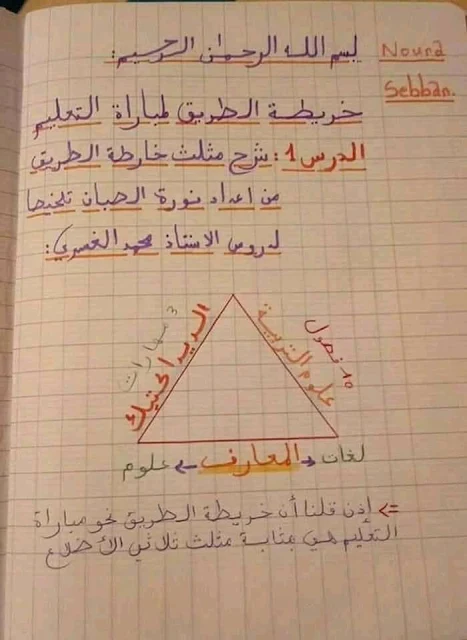 بسم الله الرحمان الرحيم:
Noura
Sebban.
خريطة الطريق لمباراة التعليم
الدرس 1: شرح مثلث خارطة الطريق
من اعداد نورة الصبان تلخيصا
لدروس الاستاذ محمد الغصري:
3 مهارات
الديداكتيك
علوم التربية
10 فصول
لغات ← المعارف → علوم
=> إذن قلنا أن خريطة الطريق نحو مباراة
التعليم هي بمثابة مثلث ثلاثي الأضلاع